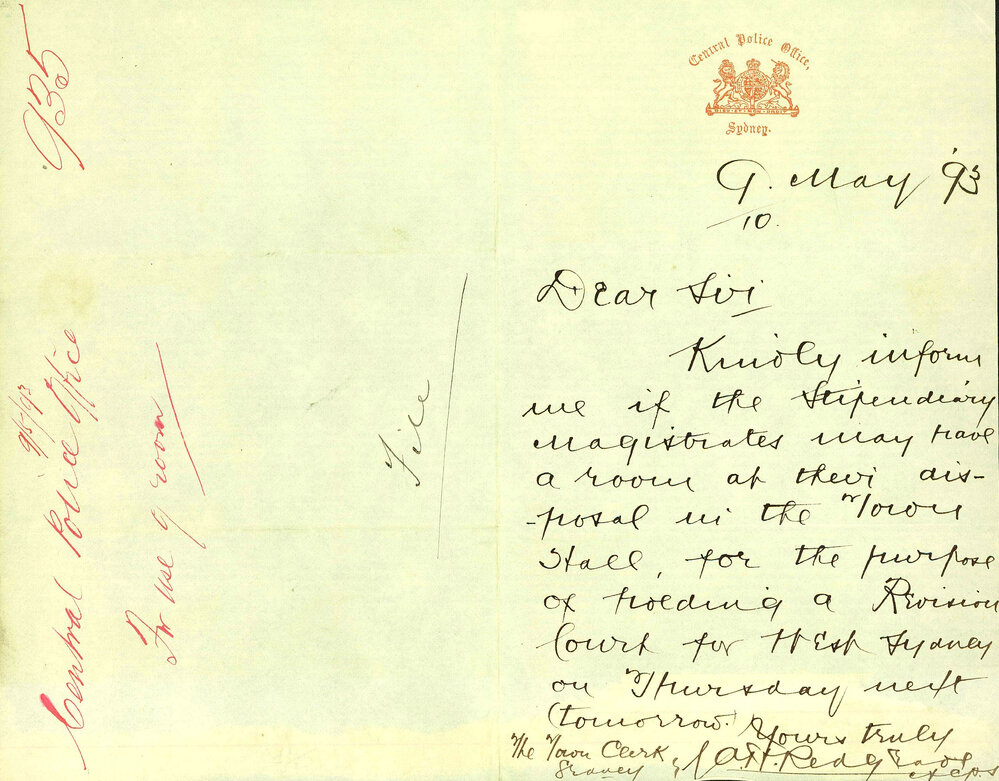 935
Central Police Office
9/5/93
For use of room
File
Central Police Office,
DIEU ET MON DROIT
Sydney.
9. May '93
10.
Dear Sir
Kindly inform
me if the Stipendiary
Magistrates may have
a room at their dis-
-posal in the Town
Hall, for the purpose
of holding a Revision
Court for West Sydney
on Thursday next
(tomorrow.)
Yours truly
The Town Clerk
Sydney